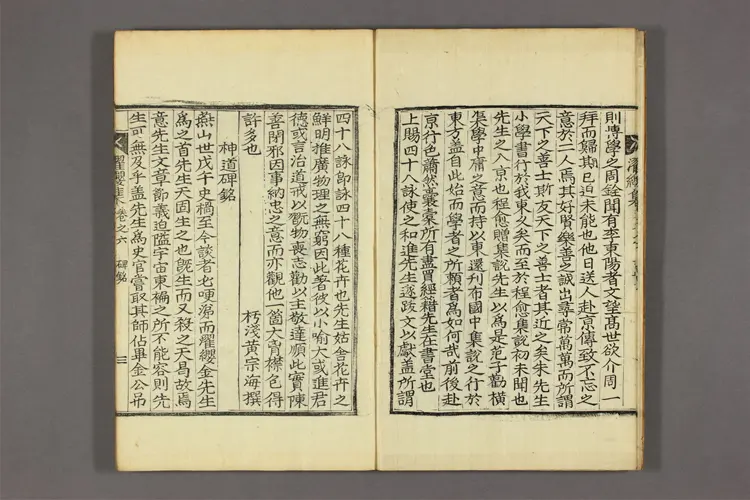 則博學之周銓聞有李東陽者文望高世欲介周一
拜而歸期已迫未能也他日送人赴京傳致不忘之
意於二人焉其好賢樂善之誠出尋常萬萬而所謂
天下之善士斯友天下之善士者其近之矣朱先生
小學書行於我東久矣而至於程愈集說初未聞也
先生之入京也程愈贈集說先生以爲是范子勸橫
渠學中庸之意而持以東還刊布國中集說之行於
東方盖自此始而學者之所賴者爲如何哉前後赴
京行色蕭然囊橐所有盡買經籍先生在書堂也
上賜四十八詠使之和進先生遂跋文以獻盖所謂
四十八詠即詠四十八種花卉也先生姑舍花卉之
鮮明推廣物理之無窮因此著彼以小喻大或進君
德或言治道戒以翫物喪志勸以主敬達順此實陳
善閉邪因事納忠之意而亦觀他一箇大胷襟包得
許多也
朽淺黃宗海撰
神道碑銘
燕山世戊午史禍至今談者必哽涕而濯纓金先生
爲之首先生天固生之也旣生而又殺之天曷故焉
意先生文章節義迫隘宇宙東褊之所不能容則先
生可無及乎盖先生爲史官嘗取其師佔畢金公弔
濯纓集 卷之六 碑銘 三